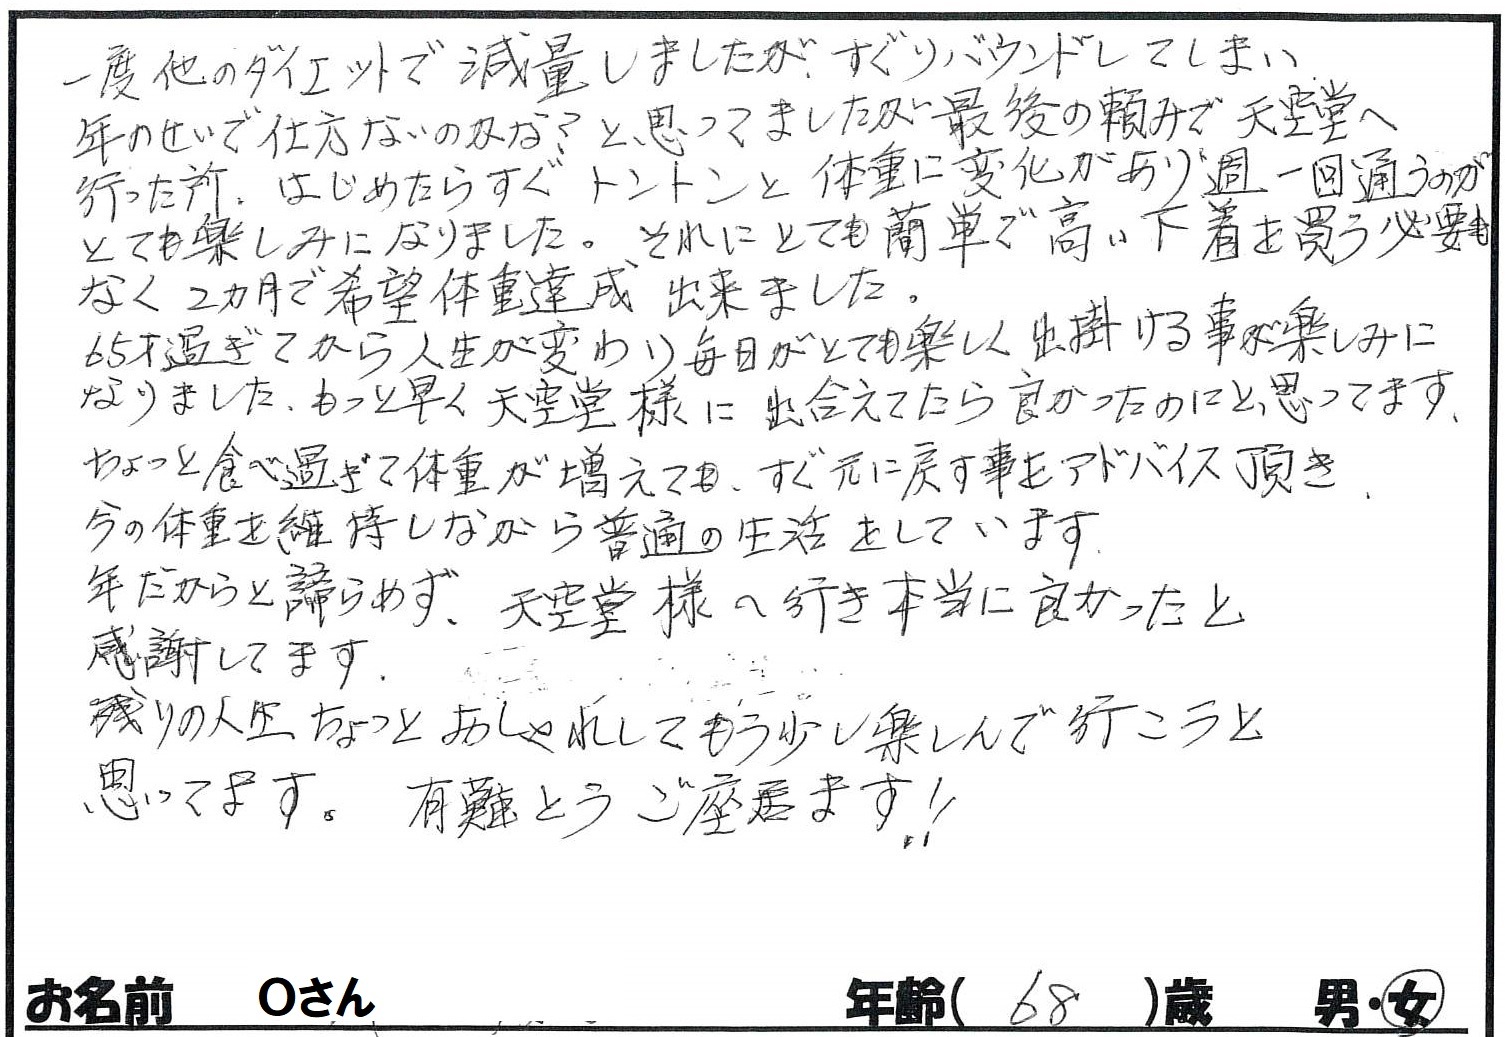 一度他のダイエットで減量しましたが、すぐリバウンドしてしまい
年のせいで仕方ないのかな？と思ってましたが最後の頼みで天空堂へ
行った所、はじめたらすぐトントンと体重に変化があり週一回通うのが
とても楽しみになりました。それにとても簡単で高い下着を買う必要も
なく2カ月で希望体重達成出来ました。
65才過ぎてから人生が変わり毎日がとても楽しく出掛ける事が楽しみに
なりました、もっと早く天空堂様に出合えてたら良かったのにと思ってます、
ちょっと食べ過ぎて体重が増えても、すぐ元に戻す事をアドバイス頂き、
今の体重を維持しながら普通の生活をしています、
年だからと諦らめず、天空堂様へ行き本当に良かったと
感謝してます、
残りの人生ちょっとおしゃれしてもう少し楽しんで行こうと
思ってます。有難とうご座居ます!!
お名前 Oさん 年齢( 68 )歳 男・女